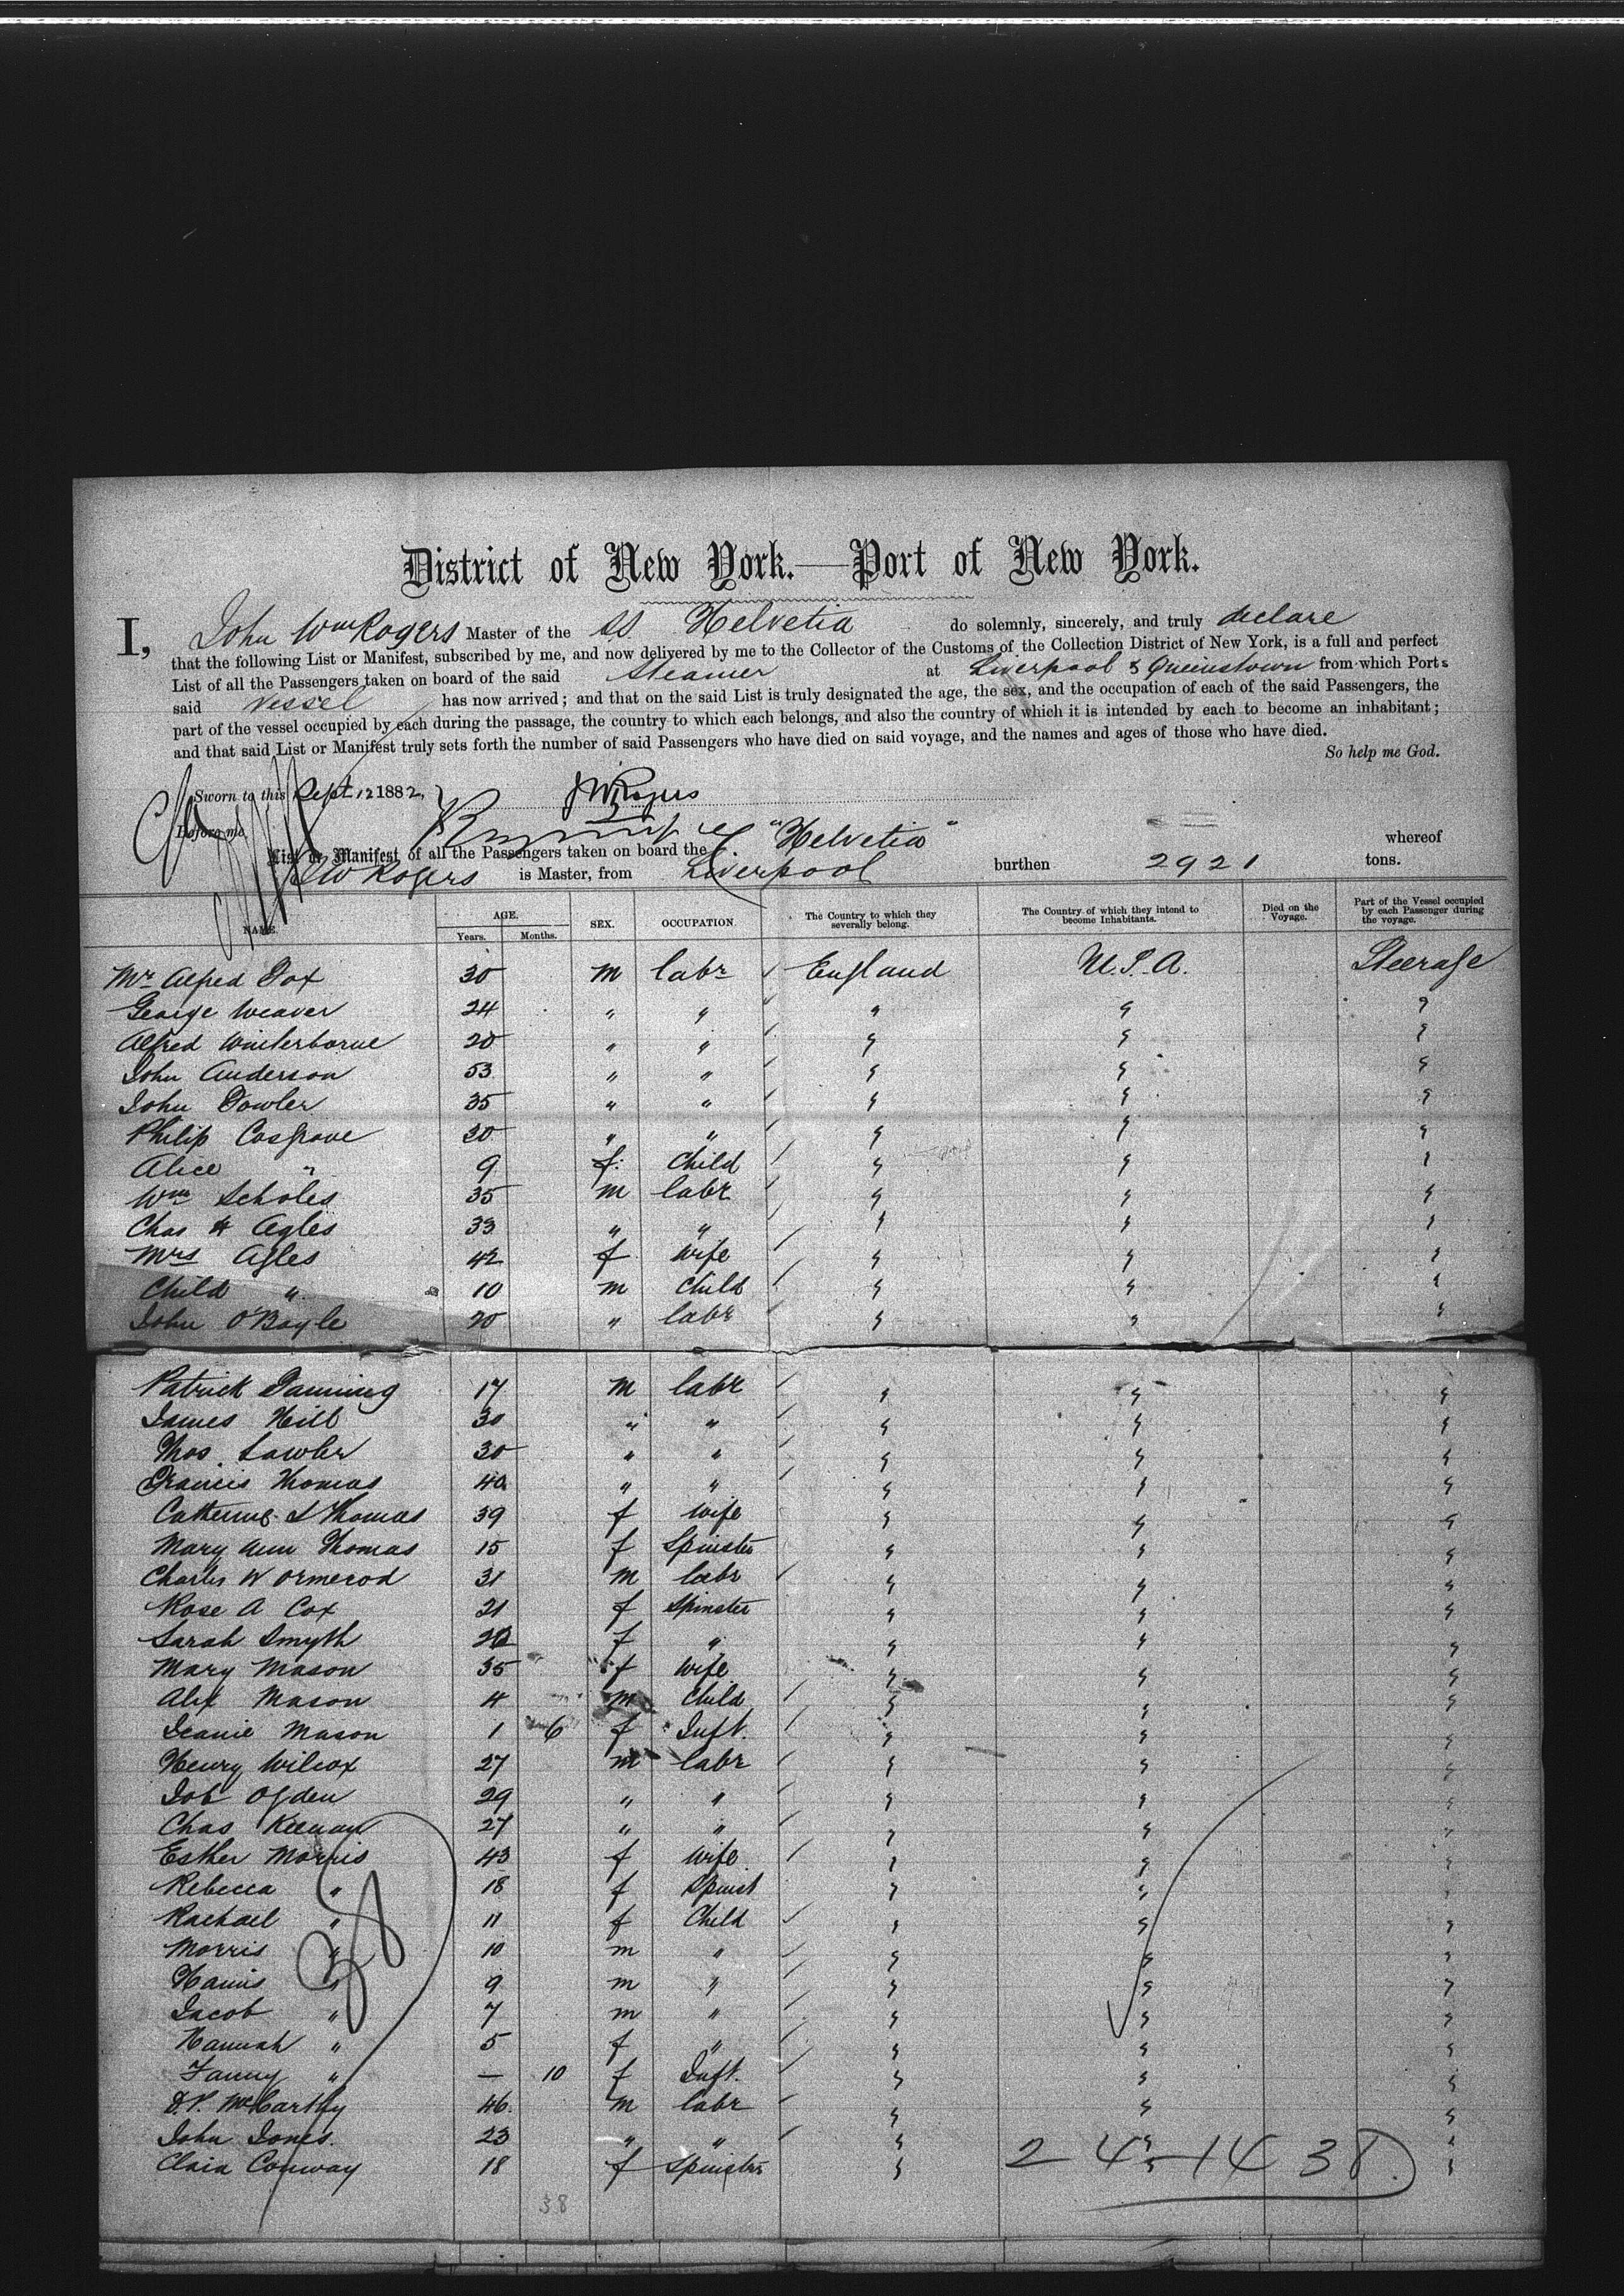 District of New York.—Port of New York.
I, John Wm Rogers Master of the SS Helvetia do solemnly, sincerely, and truly declare
that the following List or Manifest, subscribed by me, and now delivered by me to the Collector of the Customs of the Collection District of New York, is a full and perfect
List of all the Passengers taken on board of the said Steamer at Liverpool & Queenstown from which Ports
said Vessel has now arrived; and that on the said List is truly designated the age, the sex, and the occupation of each of the said Passengers, the
part of the vessel occupied by each during the passage, the country to which each belongs, and also the country of which it is intended by each to become an inhabitant;
and that said List or Manifest truly sets forth the number of said Passengers who have died on said voyage, and the names and ages of those who have died.
So help me God.
Sworn to this Sept 12 1882, J W Rogers
Before me
List or Manifest of all the Passengers taken on board the "Helvetia" whereof
J W Rogers is Master, from Liverpool burthen 2921 tons.
NAME. AGE. Years. Months. SEX. OCCUPATION. The Country to which they severally belong. The Country of which they intend to become Inhabitants. Died on the Voyage. Part of the Vessel occupied by each Passenger during the voyage.
Mr Alfred Fox 30 m labr England U.S.A. Steerage
George Weaver 24 " " " " "
Alfred Winterborne 20 " " " " "
John Anderson 53 " " " " "
John Fowler 35 " " " " "
Philip Cosgrove 30 " " " " "
Alice " 9 f. Child " " "
Wm Scholes 35 m labr " " "
Chas H Agles 33 " " " " "
Mrs Agles 42 f wife " " "
Child " 10 m Child " " "
John O'Boyle 20 " labr " " "
Patrick Fanning 17 m labr " " "
James Hill 30 " " " " "
Thos. Lawler 30 " " " " "
Francis Thomas 40 " " " " "
Catherine S Thomas 39 f wife " " "
Mary Ann Thomas 15 f Spinster " " "
Charles W Ormerod 31 m labr " " "
Rose A Cox 21 f Spinster " " "
Sarah Smyth f " " " "
Mary Mason 35 f Wife " " "
Alex Mason 4 m Child " " "
Jeanie Mason 1 6 f Inft. " " "
Henry Wilcox 27 m labr " " "
Job Ogden 29 " " " " "
Chas Keenan 27 " " " " "
Esther Morris 43 f Wife " " "
Rebecca " 18 f Spinst " " "
Rachael " 11 f Child " " "
Morris " 10 m " " " "
" 9 m " " " "
Jacob " 7 m " " " "
Hannah " 5 f " " " "
Fanny " — 10 f Inft. " " "
D.P. McCarthy 46. m labr " " "
John Jones. 23 " " " " "
Clara Conway 18 f Spinster " " "
38
24-14 38
38